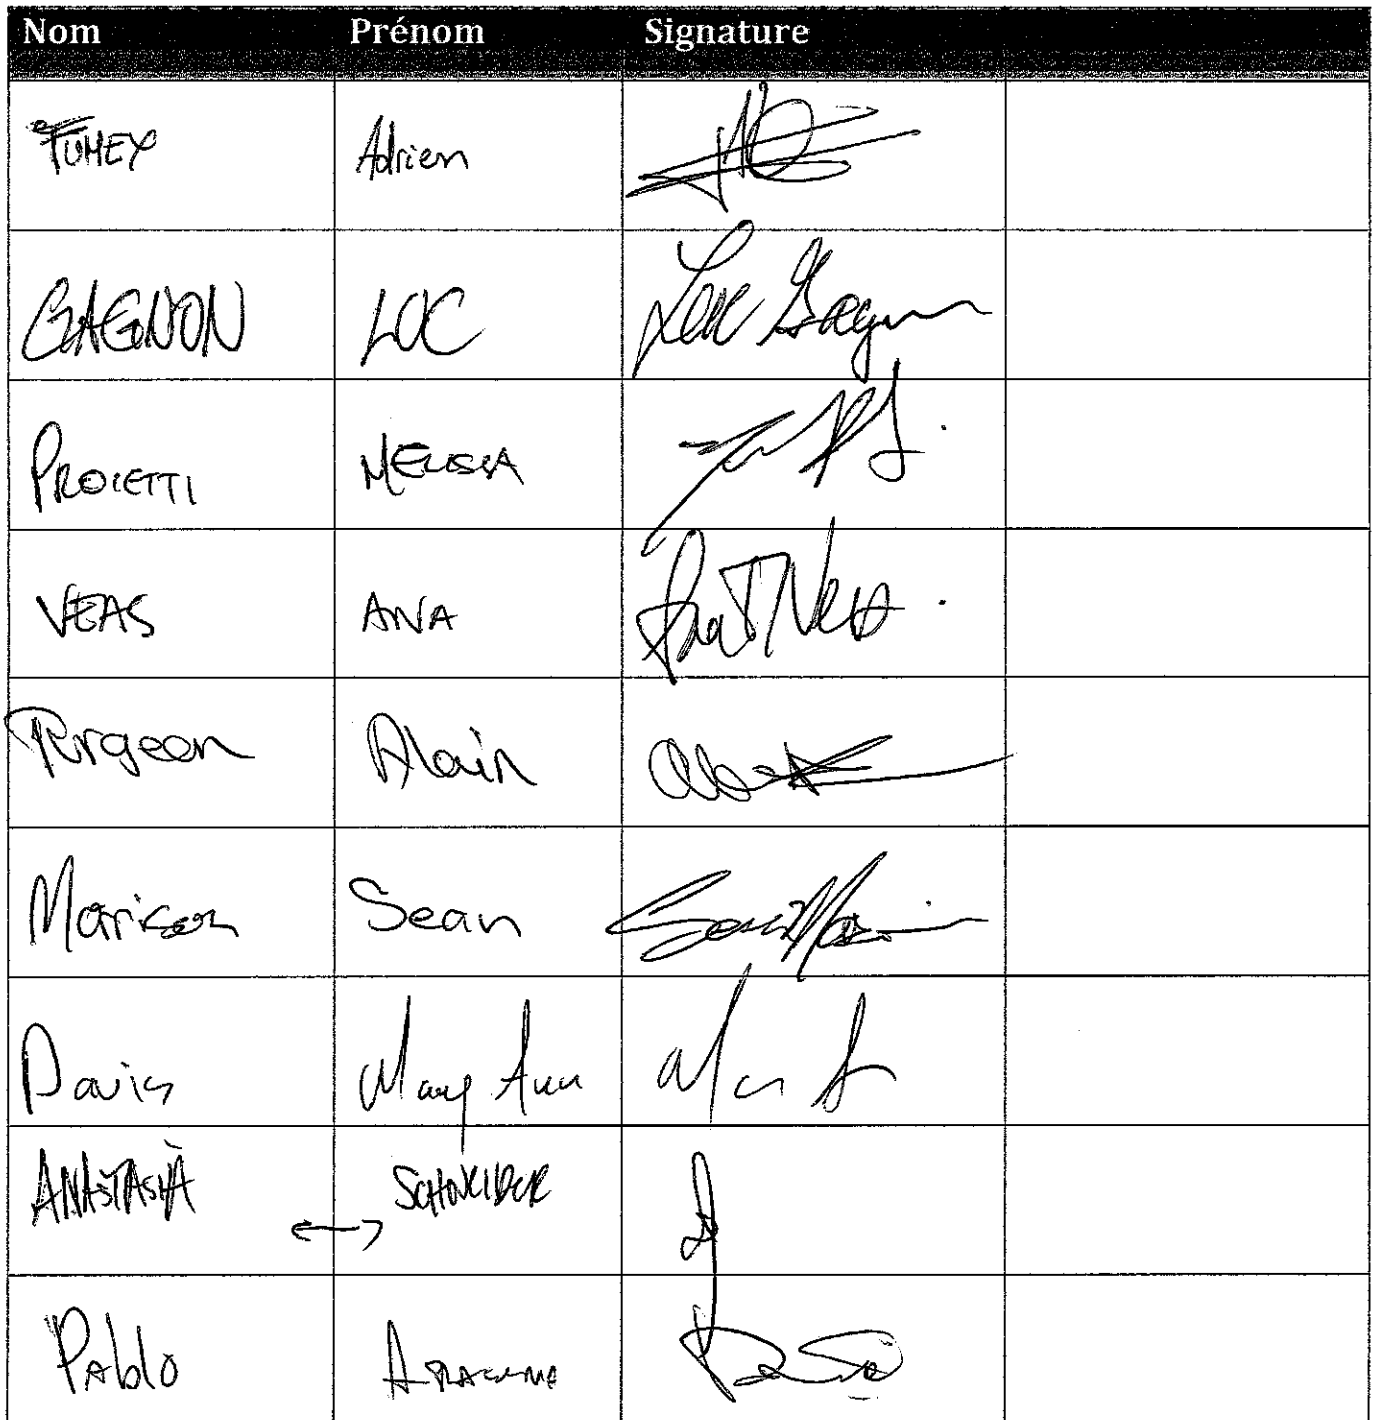 Nom Prénom Signature
FUMEY Adrien
GAGNON LUC Luc Gagnon
PROIETTI MELISSA
VEAS ANA Ana T Veas
Turgeon Alain
Morison Sean Sean
Davis Mary Ann
ANASTASIA ↔ SCHNEIDER
Pablo